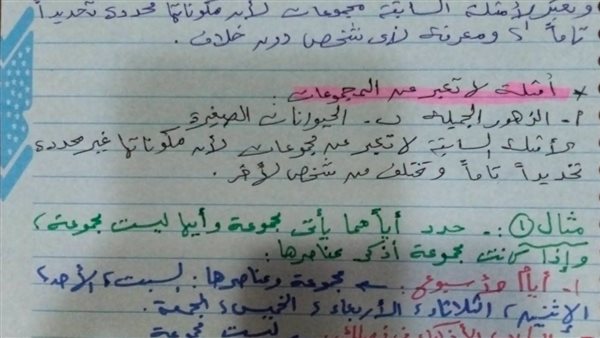 وتعتبر الأمثلة السابقة مجموعات لأن مكوناتها محددة تحديداً
تاماً ومعرفة لأي شخص دون خلاف.
* أمثلة لا تعبر عن المجموعات:
أ- الزهور الجميلة ب- الحيوانات الصغيرة
الأمثلة السابقة لا تعبر عن مجموعات لأن مكوناتها غير محددة
تحديداً تاماً وتختلف من شخص لآخر.
مثال ①:- حدد أياً مما يأتي مجموعة وأيها ليست مجموعة،
وإذا كانت مجموعة أذكر عناصرها:
١- أيام الأسبوع: مجموعة وعناصرها: السبت، الأحد،
الإثنين، الثلاثاء، الأربعاء، الخميس، الجمعة.
ليست مجموعة